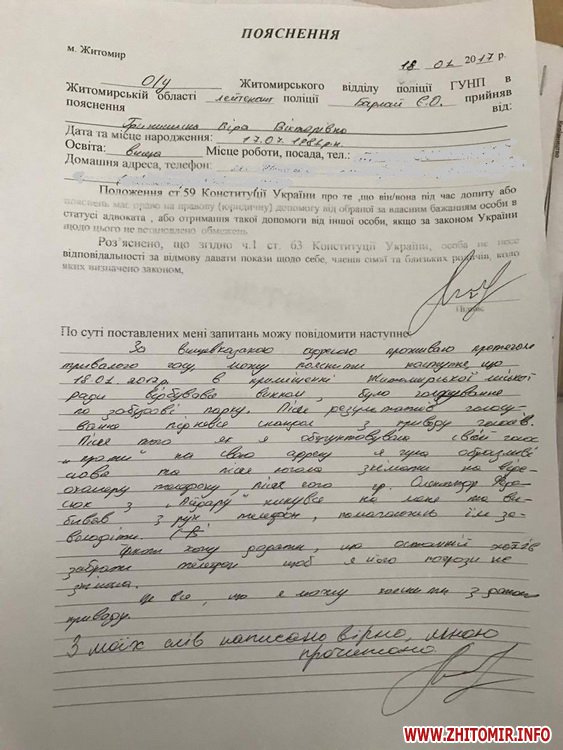 ПОЯСНЕННЯ
м. Житомир
18 01 2017 р.
О/у Житомирського відділу поліції ГУНП в
Житомирській області лейтенант поліції прийняв
пояснення від:
Віра Вікторівна
Дата та місце народження: 17.07.
Освіта: вища Місце роботи, посада, тел.:
Домашня адреса, телефон:
Положення ст.59 Конституції України про те ,що він/вона під час допиту або
пояснень має право на правову (юридичну) допомогу від обраної за власним бажанням особи в
статусі адвоката , або отримання такої допомоги від іншої особи, якщо за законом України
щодо цього не встановлено обмежень
Роз'яснено, що згідно ч.1 ст. 63 Конституції України, особа не несе
відповідальності за відмову давати покази щодо себе, членів сімї та близьких родичів, коло
яких визначено законом,
Підпис
По суті поставлених мені запитань можу повідомити наступне
За вищевказаною адресою проживаю протягом
тривалого часу, можу пояснити наступне, що
18.01.2017р. в приміщенні Житомирської міської
ради відбувався виконком, було голосування
по забудові парку. Після результатів голосу-
вання піднявся скандал з приводу голосів.
Після того як я обгрунтовувала свій голос
"проти" на свою адресу я чула образливі
слова та після почала знімати на віде-
окамеру телефону, після чого гр. Олександр
з "Айдару" кинувся на мене та ви-
бивав з рук телефон, намагаючись їм за-
володіти.
Також хочу додати, що останній хотів
забрати телефон щоб я його погрози не
знімала.
Це все, що я можу пояснити з даного
приводу.
З моїх слів написано вірно, мною
прочитано
WWW.ZHITOMIR.INFO